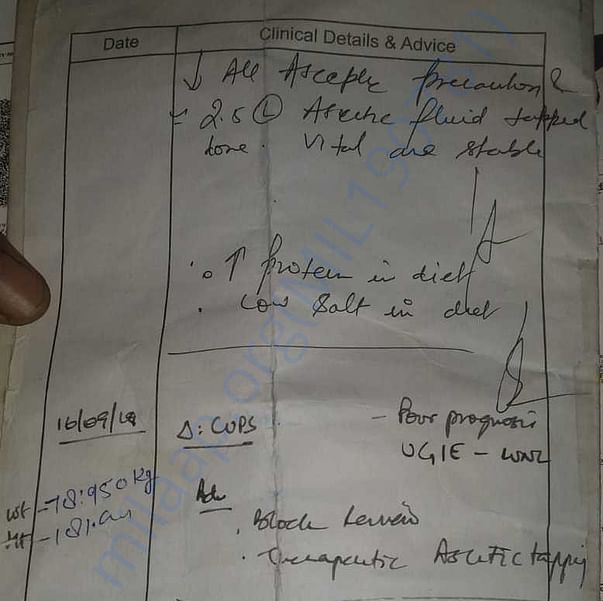 Date Clinical Details & Advice
↓ All Aseptic precaution &
2.5 L Ascitic fluid tapped
done. Vital are stable
↑ Protein in diet
. Low Salt in diet
16/09/19 Δ: CUPS - Poor prognosis
UGIE - WNL
wt - 78.950 kg
Ht - 181.cm
Adv
. Block Review
. Therapeutic Ascitic tapping
milaap.org